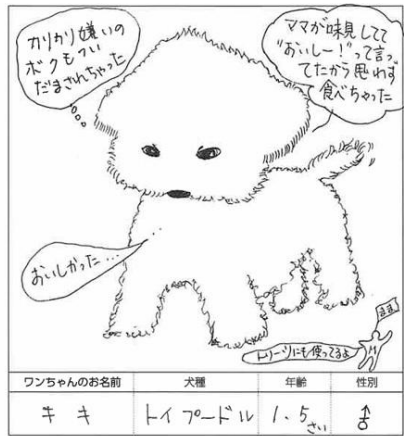 カリカリ嫌いの
ボクもつい
だまされちゃった
ママが味見してて
"おいしー！"って言っ
てたから思わず
食べちゃった
おいしかった…
トリーツにも使ってるよ
ワンちゃんのお名前
犬種
年齢
性別
キキ
トイプードル
1.5さい
♂